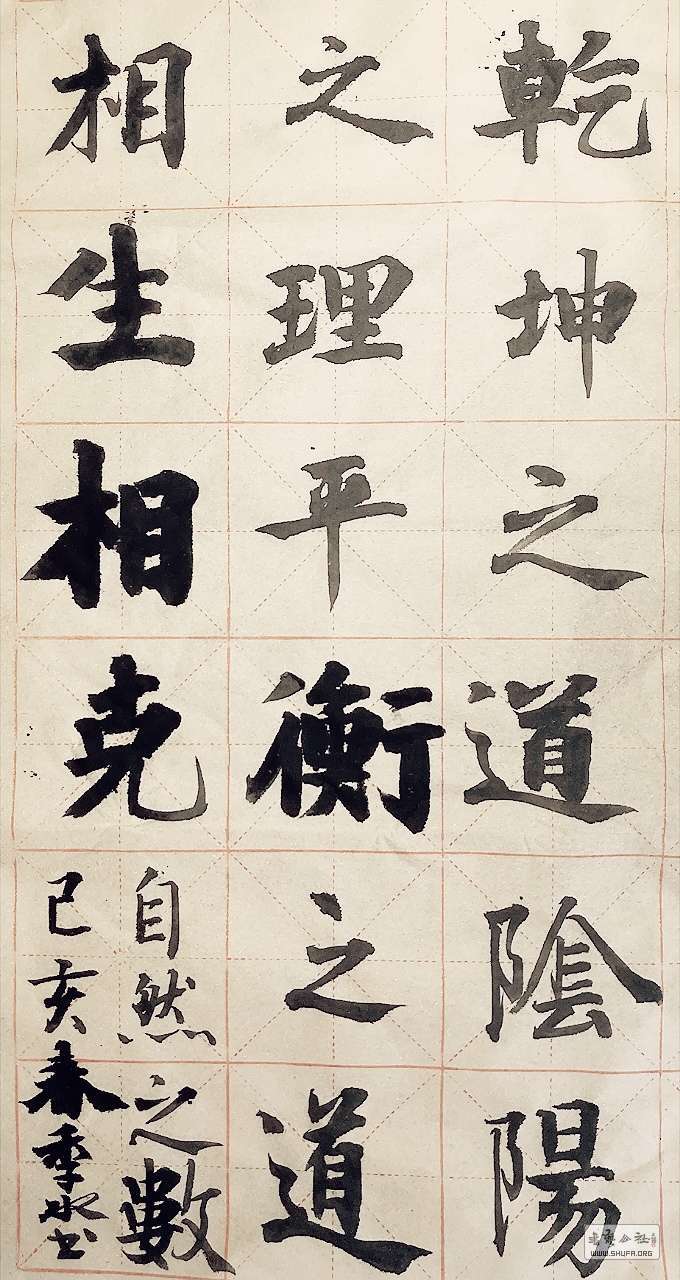 乾坤之道陰陽
之理平衡之道
相生相克
自然之數
己亥春季水書
書藝公社
WWW.SHUFA.ORG